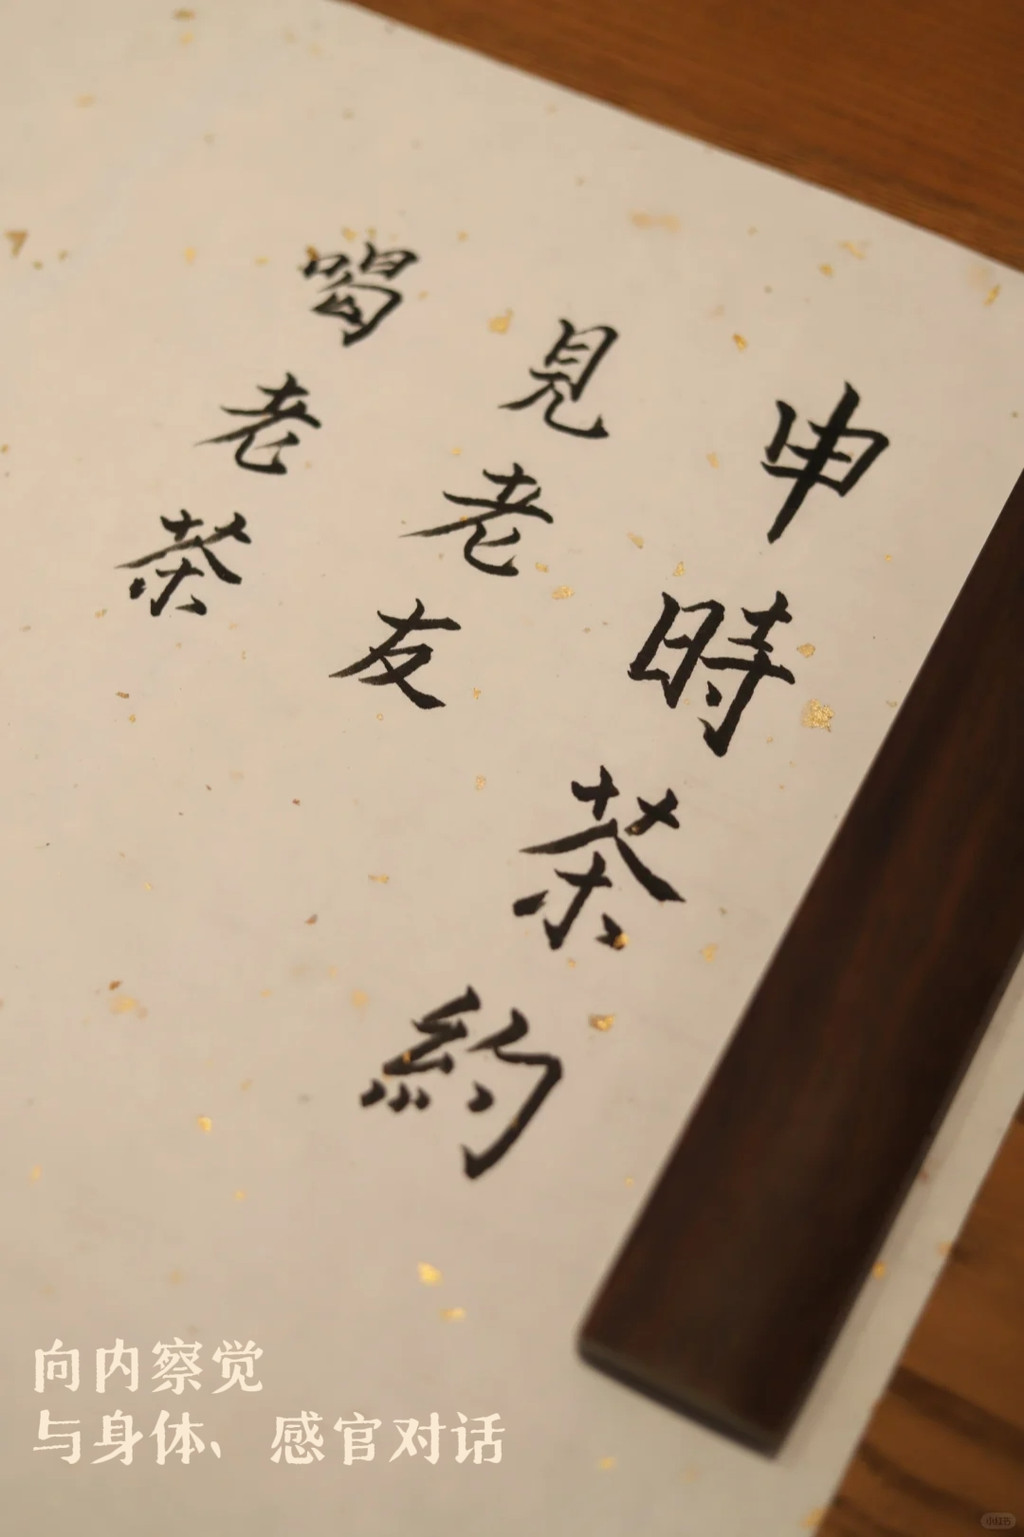 申時茶約
見老友
喝老茶
向内察觉
与身体、感官对话
小红书